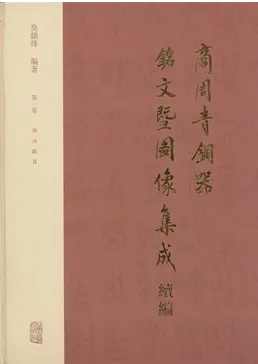 商周青銅器
銘文暨圖像集成 續編
吴鎮烽 編著